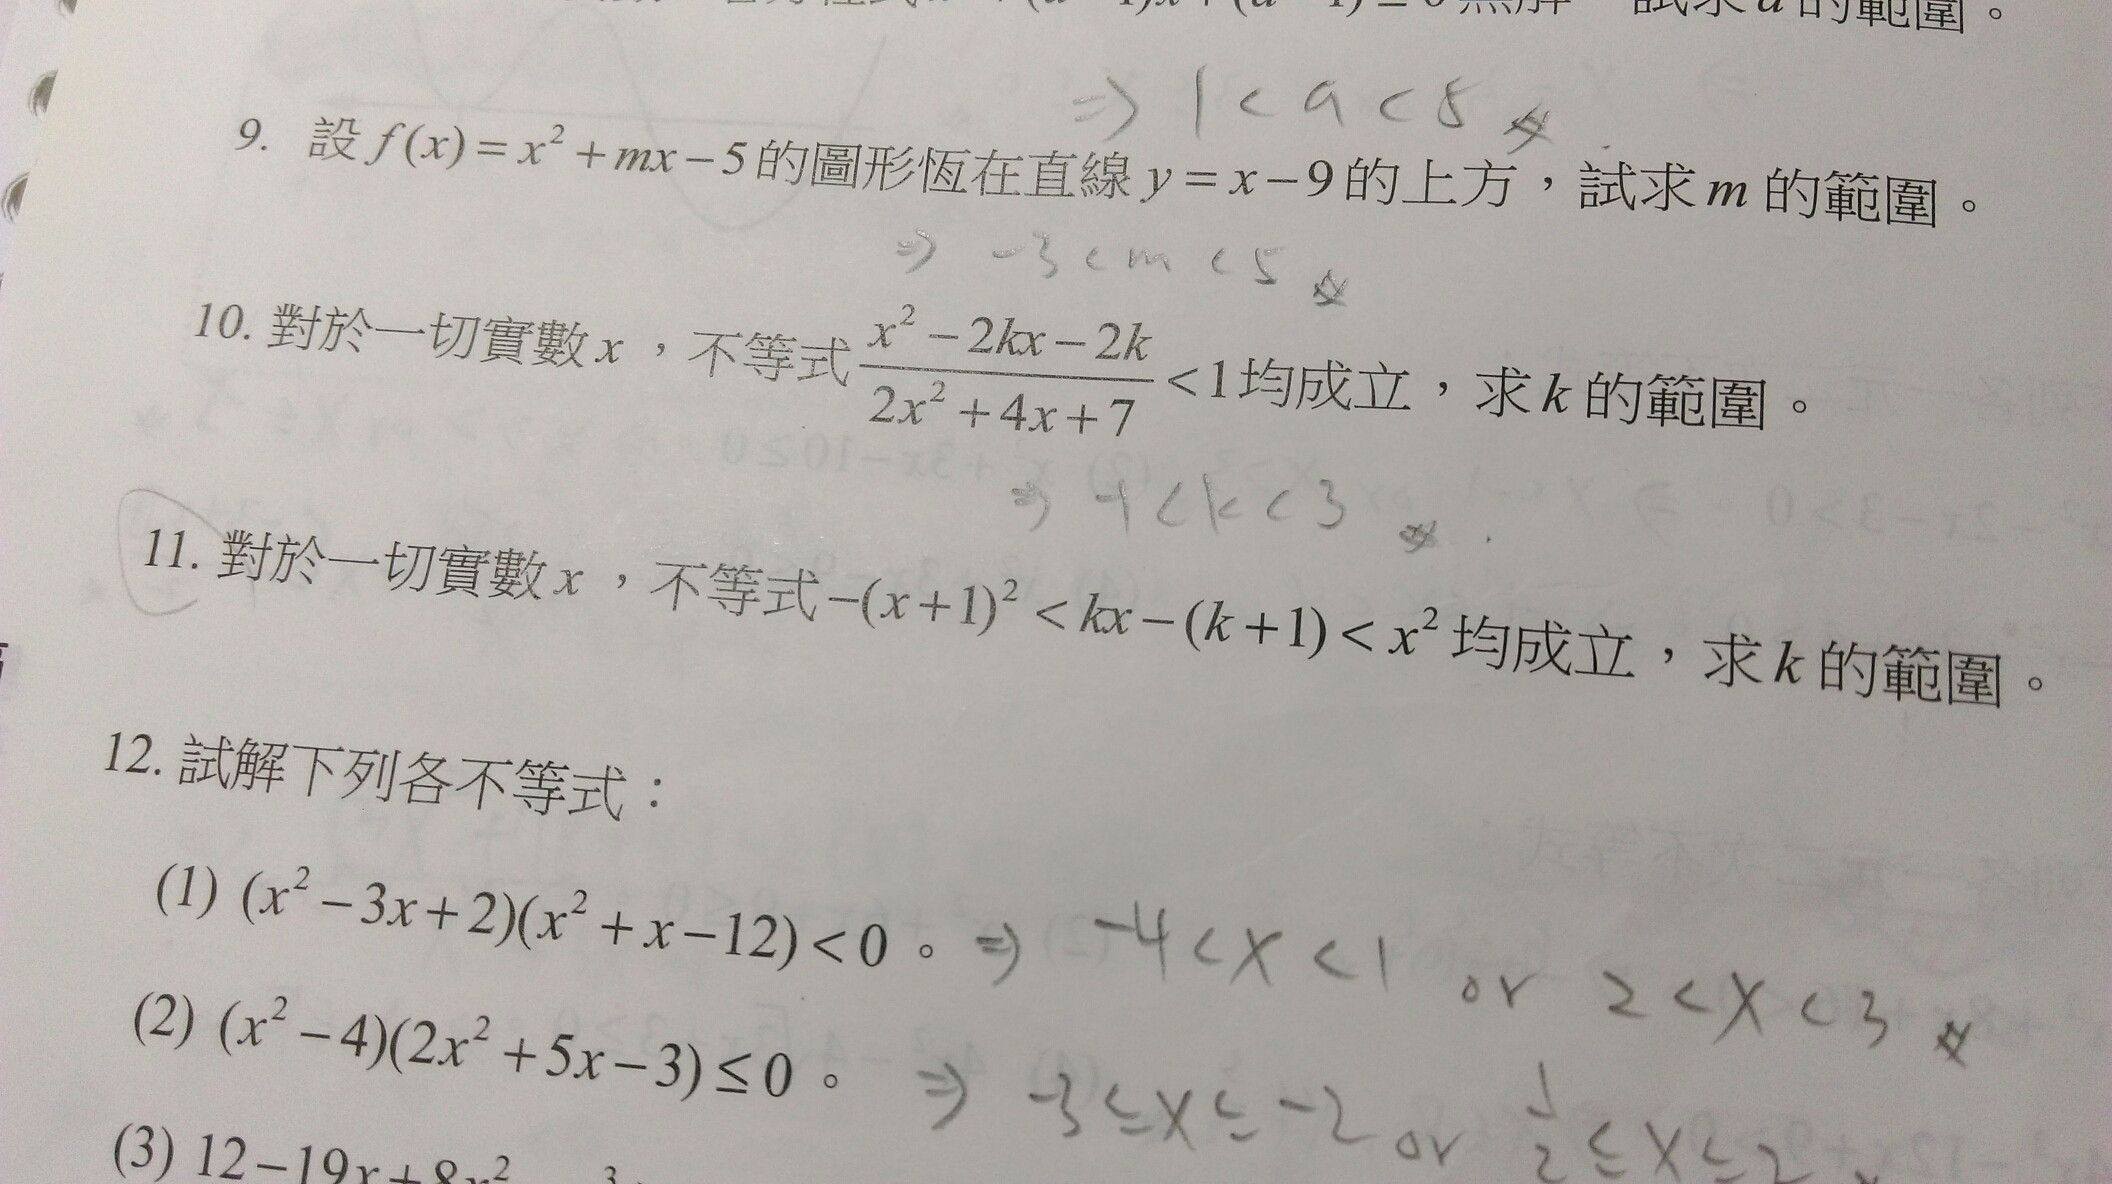 試求a的範圍。
⇒ 1 < a < 5
9. 設 f(x) = x² + mx − 5 的圖形恆在直線 y = x − 9 的上方，試求 m 的範圍。
⇒ -3 < m < 5
10. 對於一切實數 x ，不等式 (x² − 2kx − 2k)/(2x² + 4x + 7) < 1 均成立，求 k 的範圍。
⇒ -1 < k < 3
11. 對於一切實數 x ，不等式 −(x+1)² < kx − (k+1) < x² 均成立，求 k 的範圍。
12. 試解下列各不等式：
(1) (x² − 3x + 2)(x² + x − 12) < 0 。 ⇒ -4 < x < 1 or 2 < x < 3
(2) (x² − 4)(2x² + 5x − 3) ≤ 0 。 ⇒ -3 ≤ x ≤ -2 or 1/2 ≤ x ≤ 2
(3) 12 − 19x + 8x²